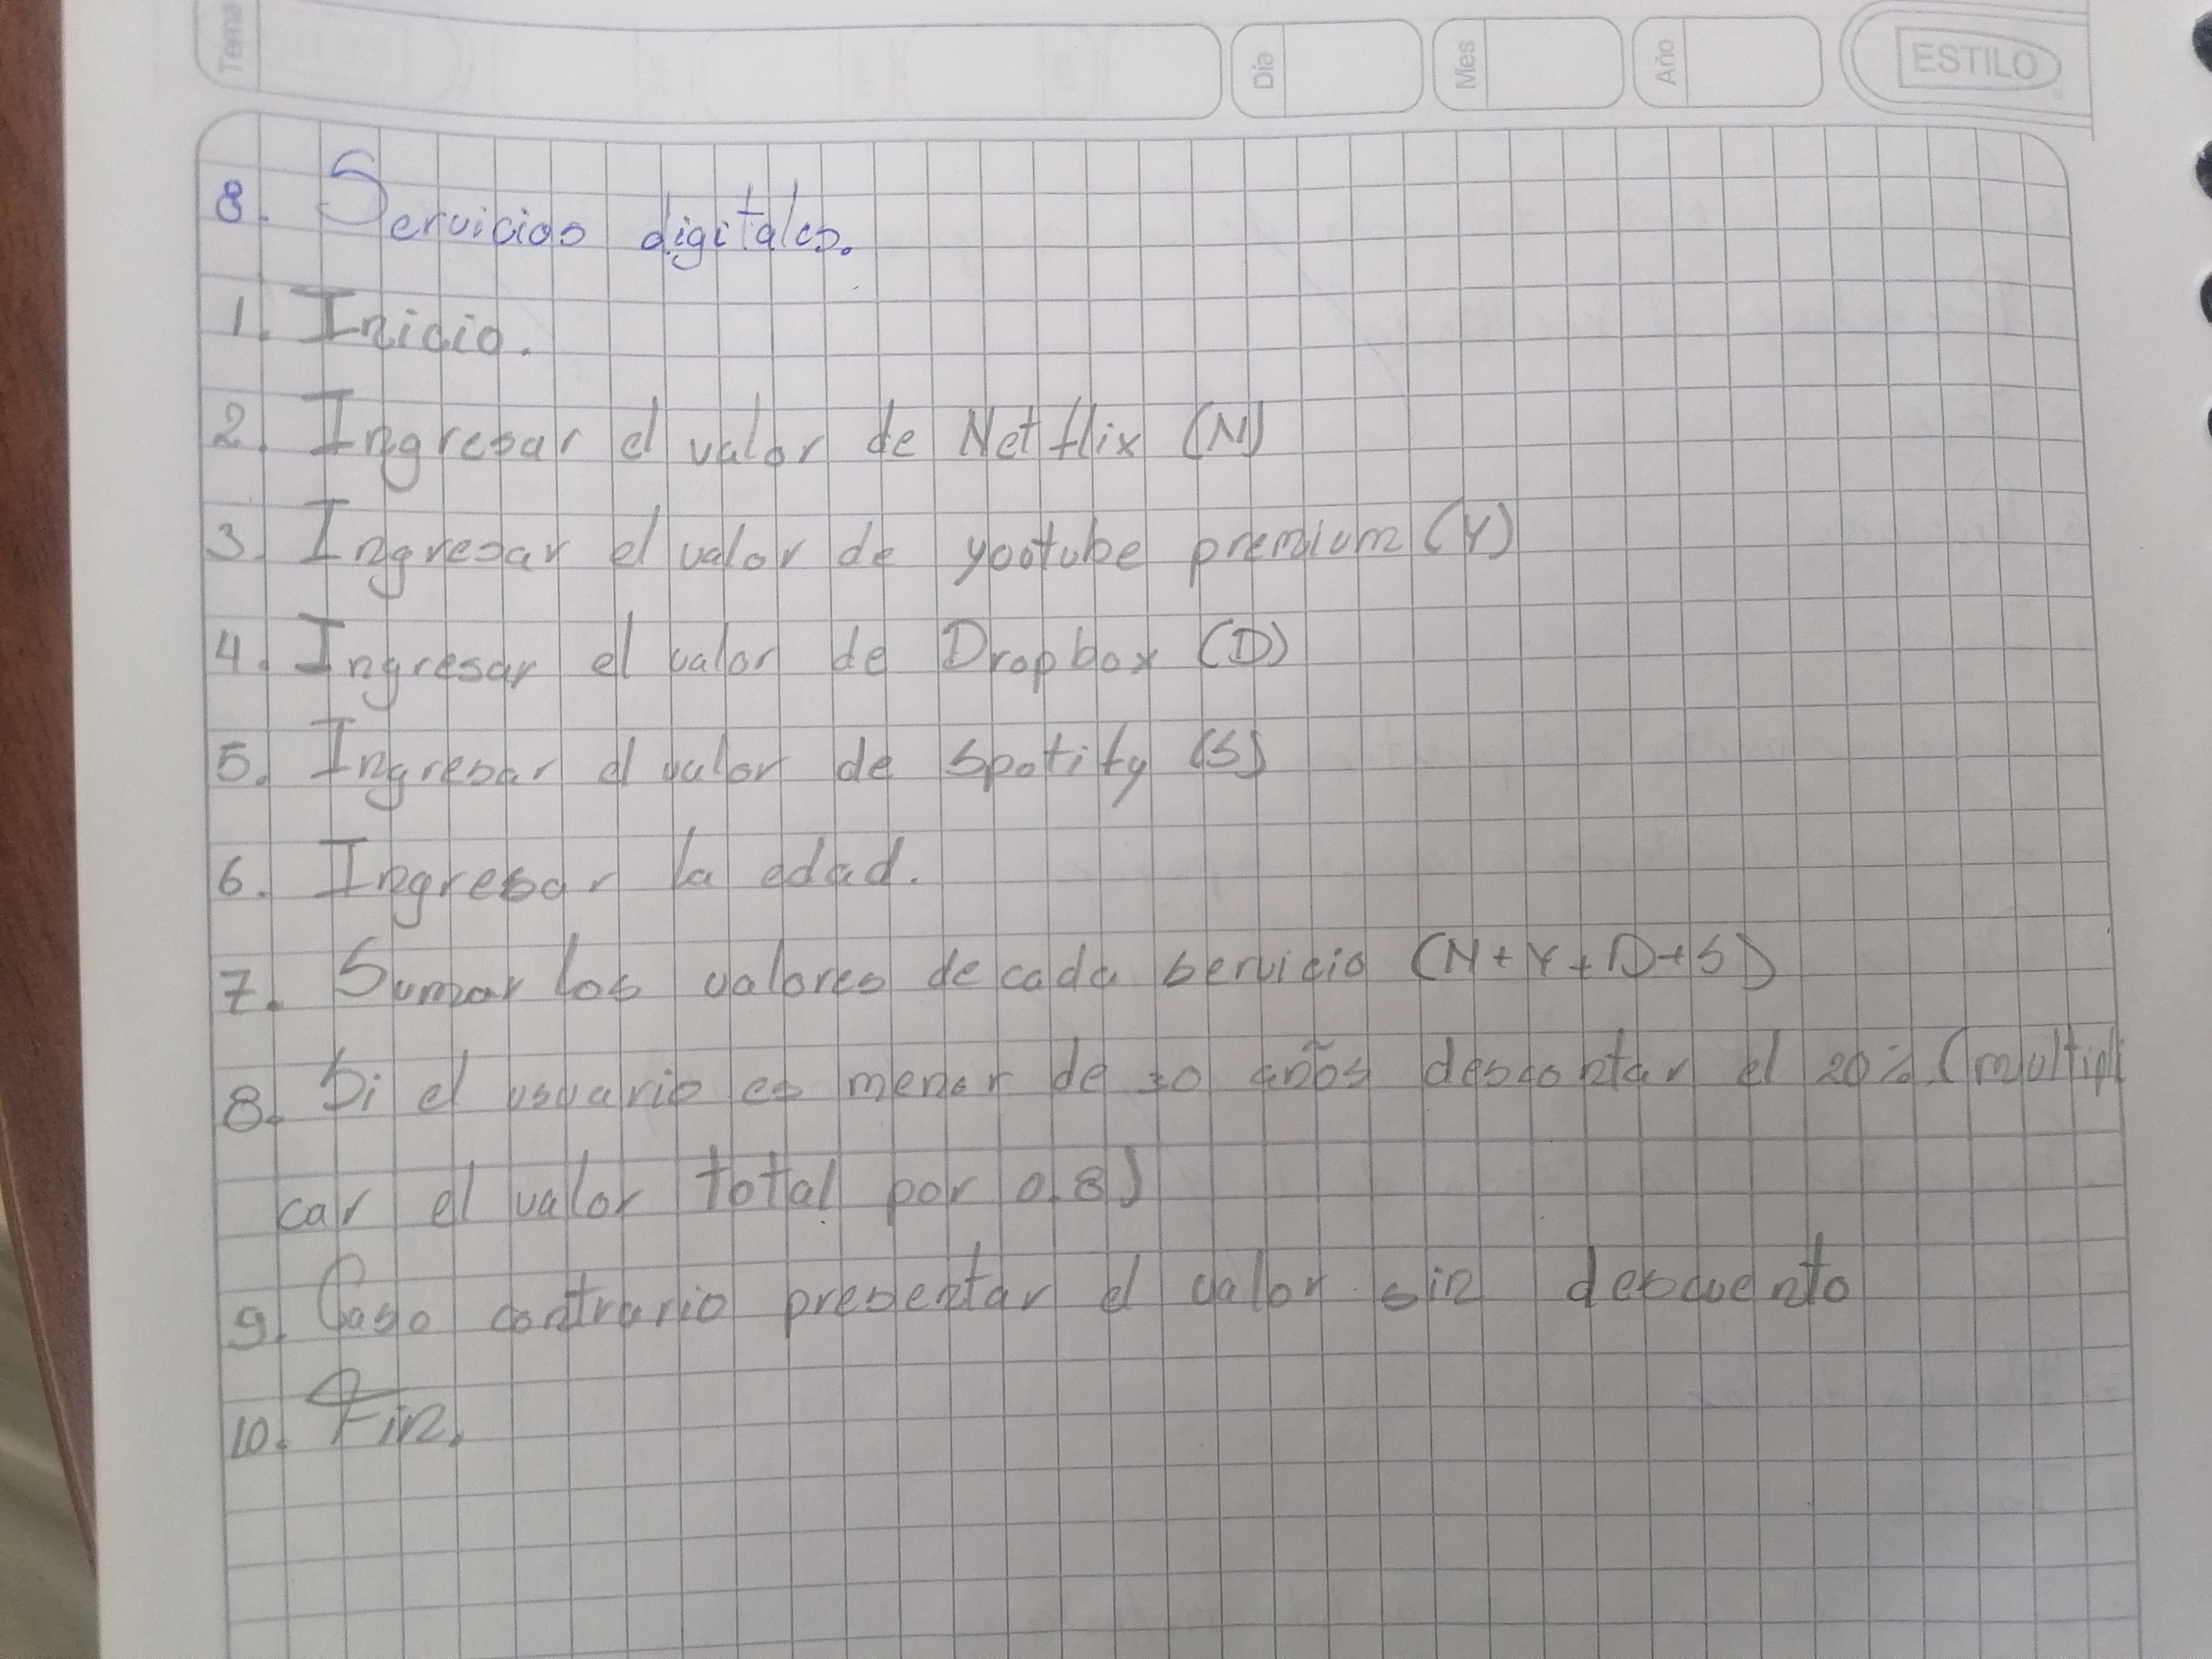 Tema
Día
Mes
Año
ESTILO
8. Servicios digitales.
1. Inicio.
2. Ingresar el valor de Netflix (N)
3. Ingresar el valor de yootube premium (Y)
4. Ingresar el valor de Dropbox (D)
5. Ingresar el valor de Spotify (S)
6. Ingresar la edad.
7. Sumar los valores de cada servicio (N+Y+D+S)
8. Si el usuario es menor de 30 años descontar el 20% (multipli
car el valor total por 0.8)
9. Caso contrario presentar el valor sin descuento
10. Fin.